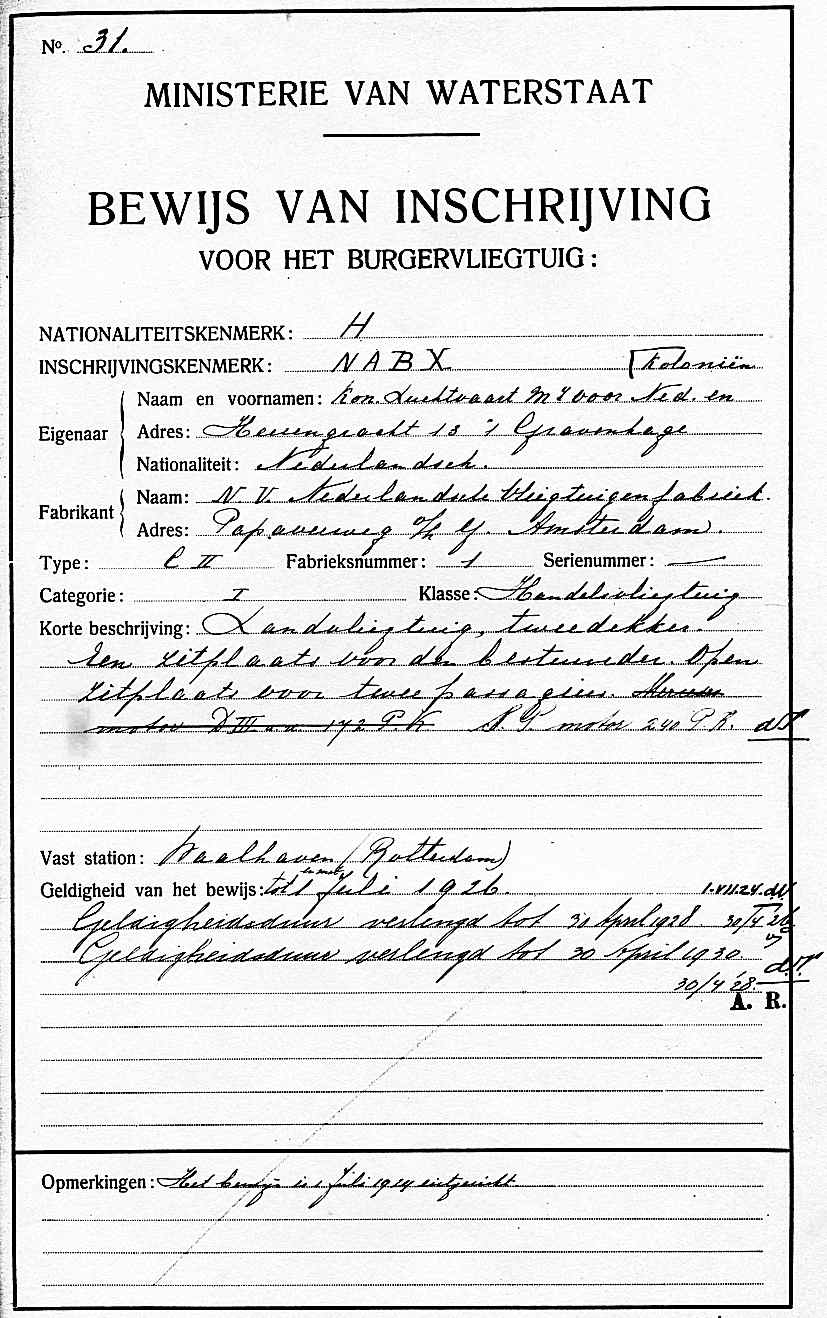 No. 31.
MINISTERIE VAN WATERSTAAT
BEWIJS VAN INSCHRIJVING
VOOR HET BURGERVLIEGTUIG:
NATIONALITEITSKENMERK: H
INSCHRIJVINGSKENMERK: NABX Koloniën
Eigenaar
Naam en voornamen: Kon. Luchtvaart My voor Ned. en
Adres: Heerengracht 13 's Gravenhage
Nationaliteit: Nederlandsch.
Fabrikant
Naam: N.V. Nederlandsche Vliegtuigenfabriek.
Adres: Papaverweg o/h Y. Amsterdam.
Type: C II Fabrieksnummer: 1 Serienummer: —
Categorie: I Klasse: Handelsvliegtuig
Korte beschrijving: Landvliegtuig, tweedekker.
Een zitplaats voor den bestuurder. Open
zitplaats voor twee passagiers. Mercedes
motor D III a.v. 172 P.K. S.P. motor 240 P.K.
Vast station: Waalhaven (Rotterdam)
Geldigheid van het bewijs: tot en met 1 Juli 1926. 1.VII.24.
Geldigheidsduur verlengd tot 30 April 1928 30/4 26
Geldigheidsduur verlengd tot 30 April 1930.
30/4 '28.
A. R.
Opmerkingen: Het bewijs is 1 Juli 1924 uitgereikt